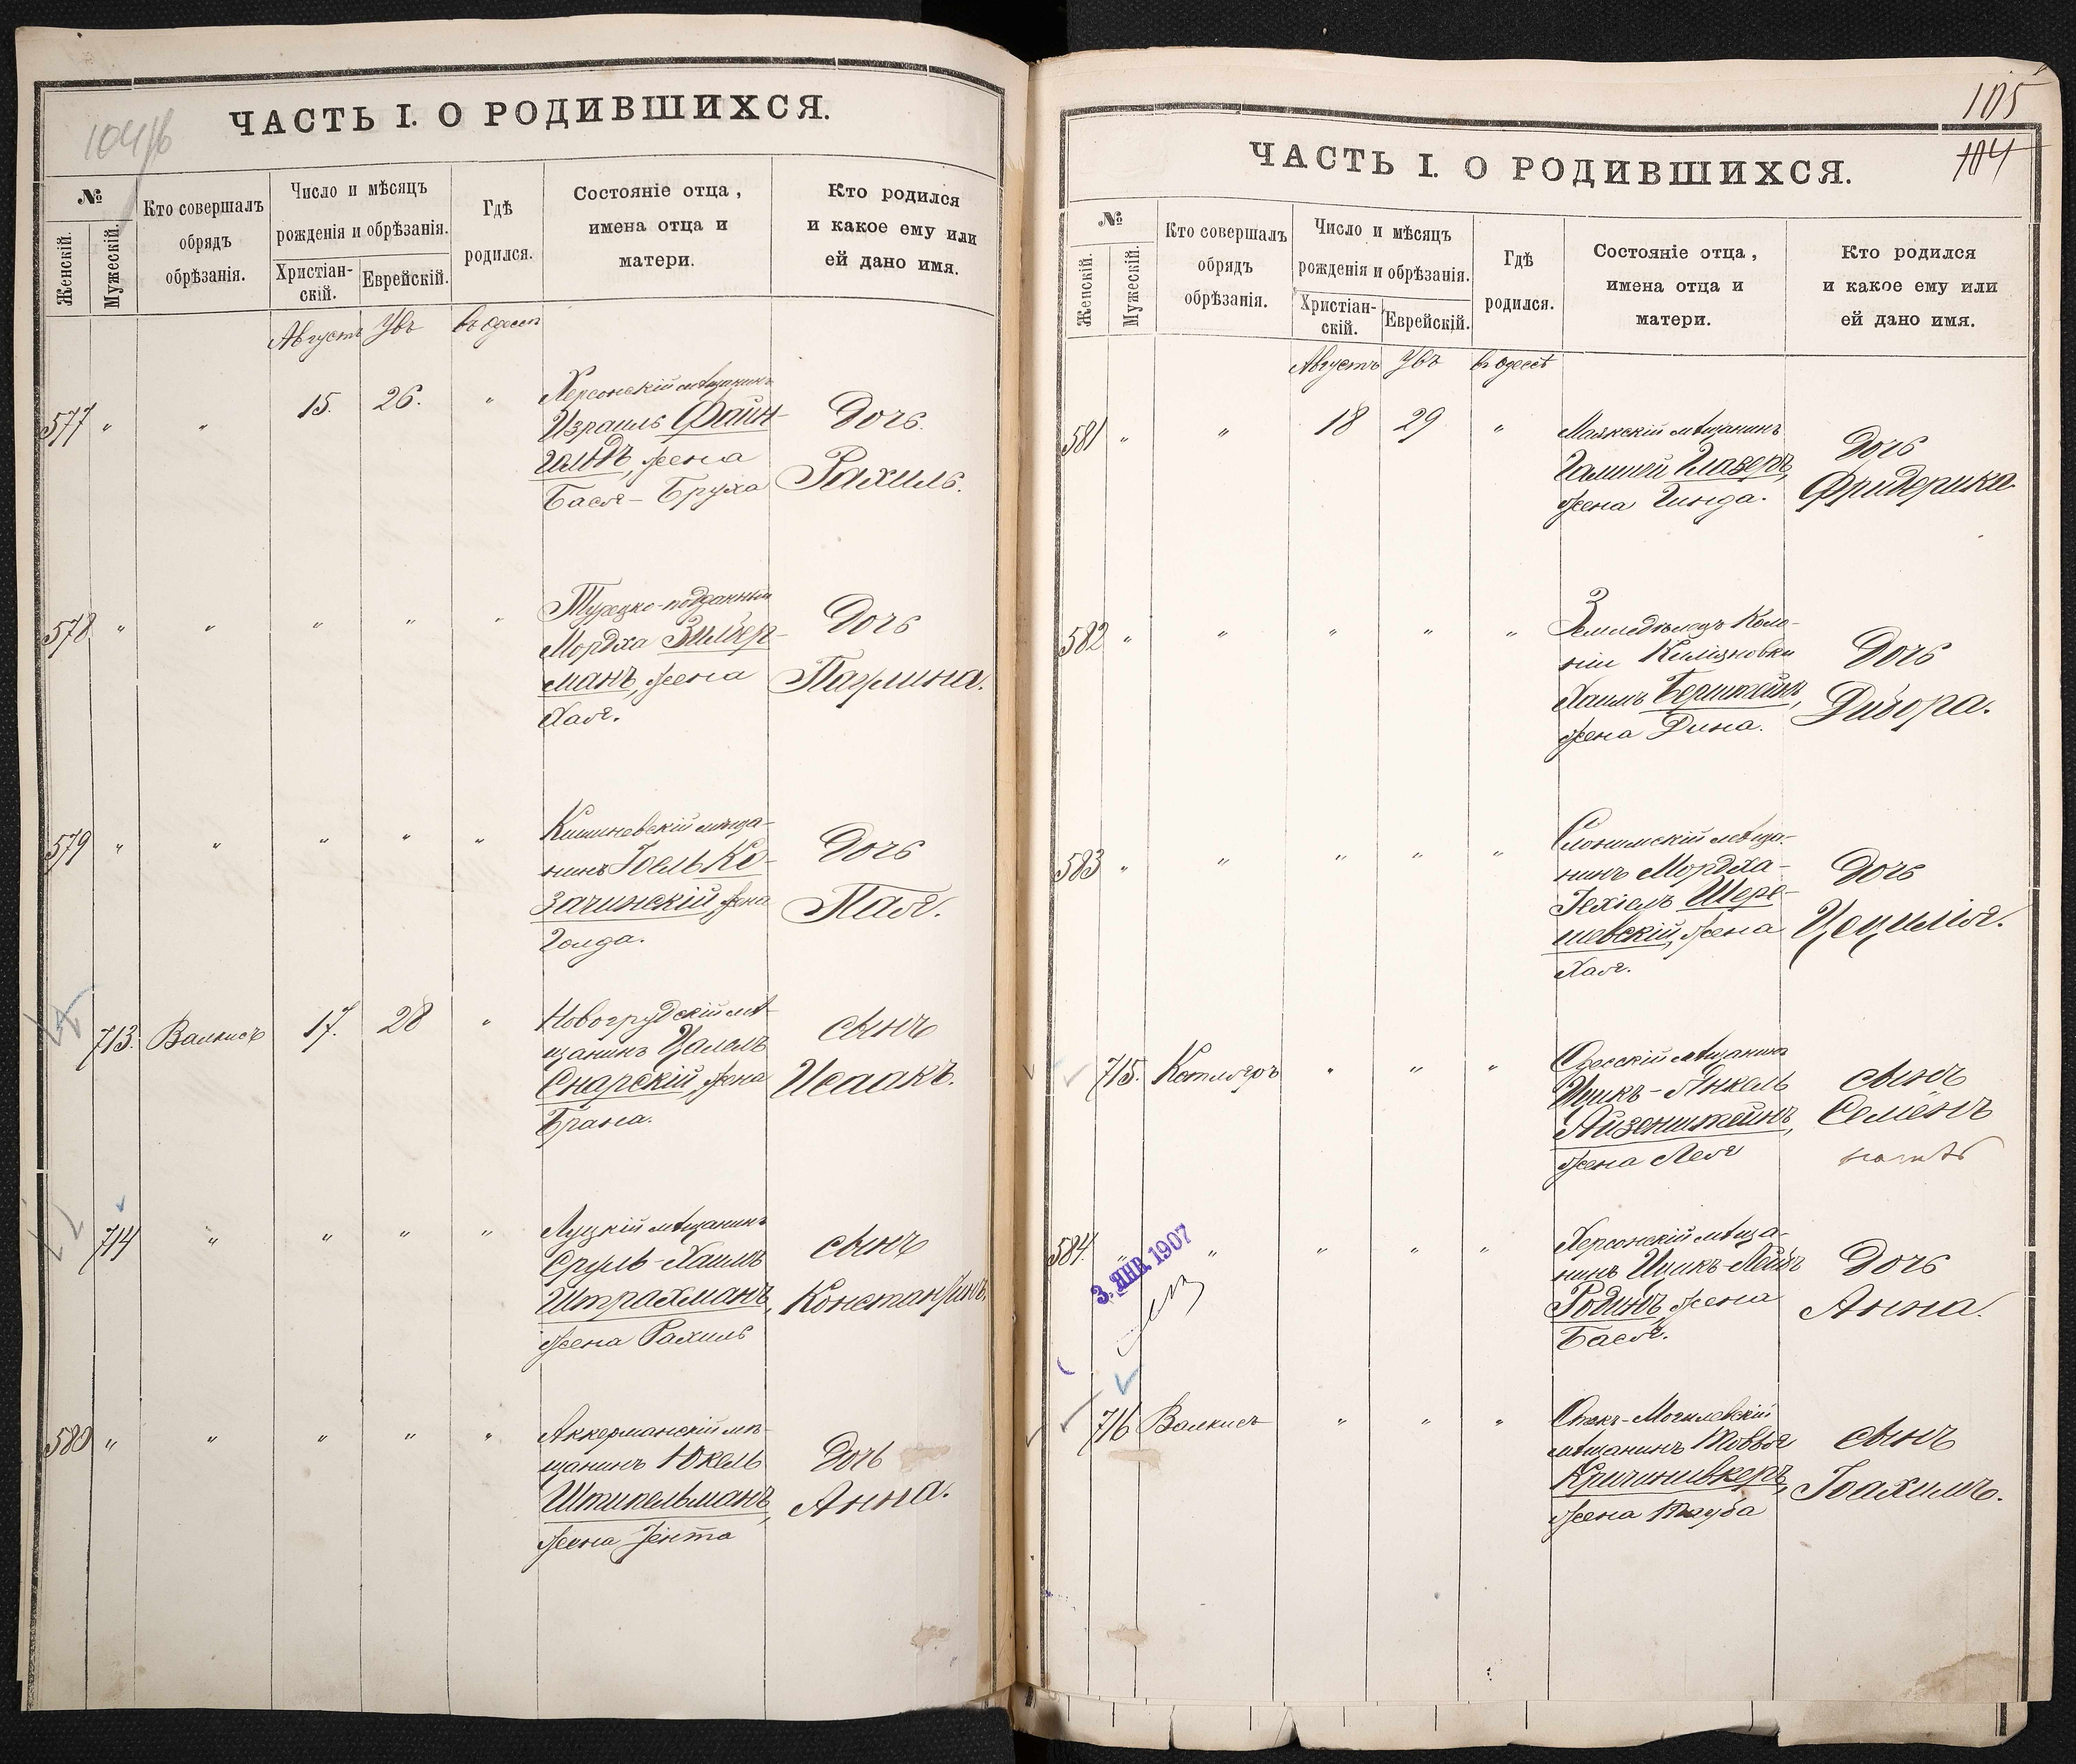 104/б
ЧАСТЬ I. О РОДИВШИХСЯ.
№
Женскій.
Мужескій.
Кто совершалъ
обрядъ
обрѣзанія.
Число и мѣсяцъ
рожденія и обрѣзанія.
Христіан-
скій.
Еврейскій.
Гдѣ
родился.
Состояніе отца,
имена отца и
матери.
Кто родился
и какое ему или
ей дано имя.
Августъ Увъ въ Одессѣ
577 " " 15. 26. "
Херсонскій мѣщанинъ
Израиль Файн-
гольдъ, жена
Бася-Бруха
Дочь
Рахиль.
578 " " " " "
Турецко-подданный
Мордха Зильбер-
манъ, жена
Хая.
Дочь
Паулина.
579 " " " " "
Кишиневскій мѣща-
нинъ Іоель Ко-
зачинскій жена
Голда.
Дочь
Пая.
713. Валкисъ 17. 28 "
Новогрудскій мѣ-
щанинъ Цалелъ
Снарскій, жена
Брана.
сынъ
Исаакъ.
714 " " " "
Луцкій мѣщанинъ
Сруль-Хаимъ
Штрахманъ,
жена Рахиль
сынъ
Константинъ.
580 " " " " "
Аккерманскій мѣ-
щанинъ Юкель
Штипельманъ,
жена Іента
Дочь
Анна.
105
104
ЧАСТЬ I. О РОДИВШИХСЯ.
№
Женскій.
Мужескій.
Кто совершалъ
обрядъ
обрѣзанія.
Число и мѣсяцъ
рожденія и обрѣзанія.
Христіан-
скій.
Еврейскій.
Гдѣ
родился.
Состояніе отца,
имена отца и
матери.
Кто родился
и какое ему или
ей дано имя.
Августъ Увъ въ Одессѣ
581 " " 18 29 "
Маякскій мѣщанинъ
Глазеръ,
жена Гинда.
Дочь
Фридерика
582 " " " " "
Земледѣлецъ Коло-
ніи
Хаимъ
жена Дина.
Дочь
Двойра.
583 " " " " "
Слонимскій мѣща-
нинъ Мордха-
Іехіель Шере-
шевскій, жена
Хая.
Дочь
Цецилія.
715. Котляръ " " "
Одесскій мѣщанинъ
Ицикъ-Янкель
Айзенштейнъ,
жена Лея
сынъ
Семенъ
584. " " " " "
3. ЯНВ. 1907
Херсонскій мѣща-
нинъ Ицикъ-Лейбъ
Родинъ, жена
Бася.
Дочь
Анна.
716 Валкисъ " " "
Могилевскій
мѣщанинъ Товья
Кричинивкеръ,
жена Тауба
сынъ
Іоахимъ.